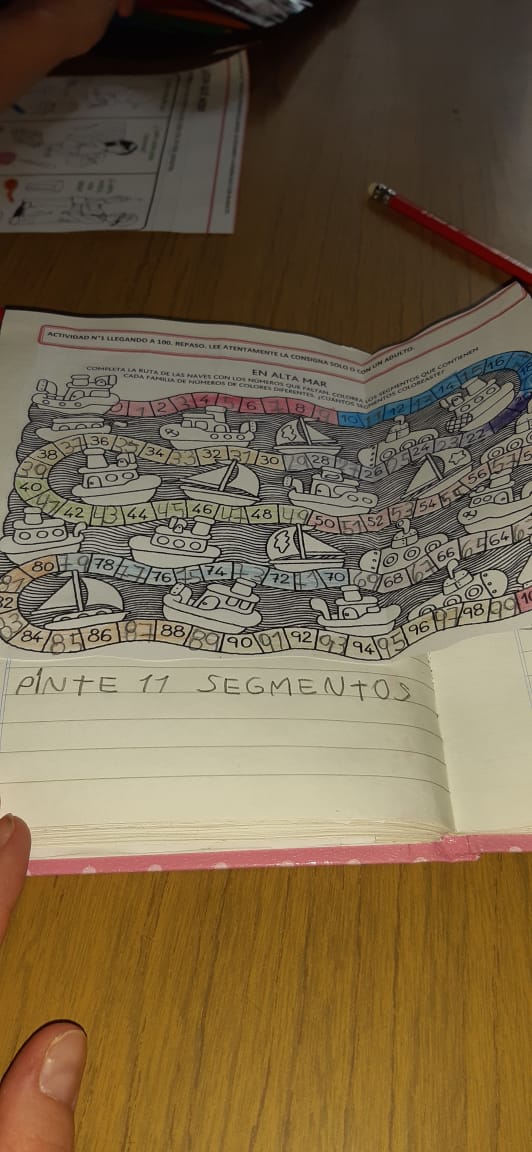 ACTIVIDAD N°1 LLEGANDO A 100. REPASO. LEE ATENTAMENTE LA CONSIGNA SOLO O CON UN ADULTO.
EN ALTA MAR
COMPLETA LA RUTA DE LAS NAVES CON LOS NÚMEROS QUE FALTAN. COLOREA LOS SEGMENTOS QUE CONTIENEN
CADA FAMILIA DE NÚMEROS DE COLORES DIFERENTES. ¿CUÁNTOS SEGMENTOS COLOREASTE?
0 1 2 3 4 5 6 7 8 9 10 11 12 13 14 15 16
38 37 36 35 34 33 32 31 30 29 28 27 26 25 24 23 22
39
40 41 42 43 44 45 46 47 48 49 50 51 52 53 54 55 56 57
80 79 78 77 76 75 74 73 72 71 70 69 68 67 66 65 64
82
84 85 86 87 88 89 90 91 92 93 94 95 96 97 98 99
PINTE 11 SEGMENTOS